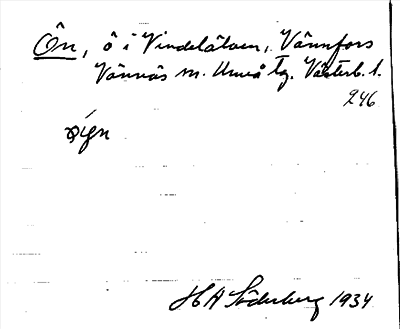 Ön, ö i Vindelälven, Vännfors
Vännäs sn. Umeå tg. Västerb. l.
246
HA Söderberg 1934